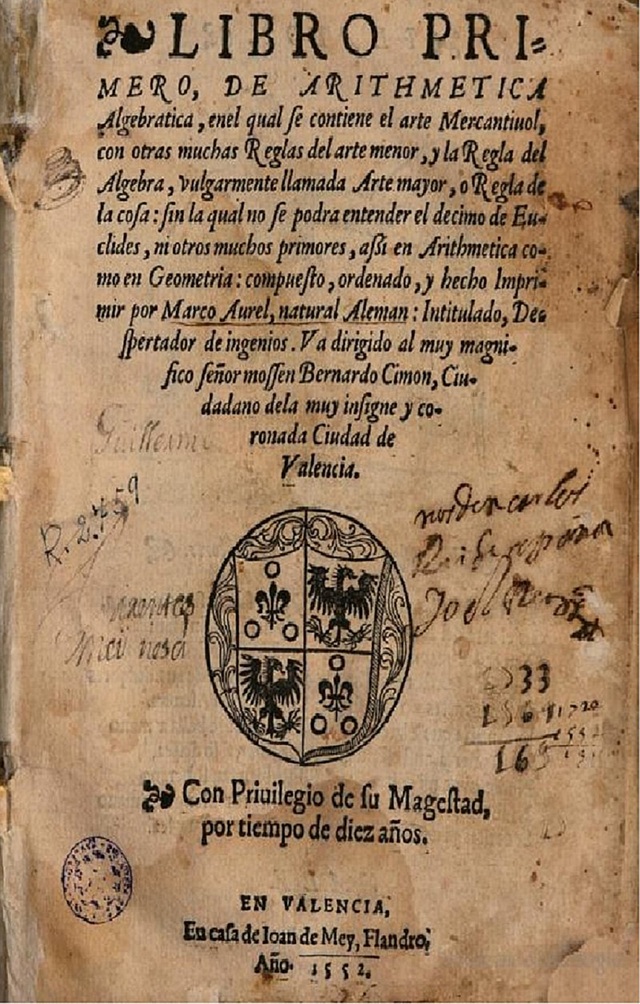 LIBRO PRI-
MERO, DE ARITHMETICA
Algebratica, enel qual ſe contiene el arte Mercantiuol,
con otras muchas Reglas del arte menor, y la Regla del
Algebra, vulgarmente llamada Arte mayor, o Regla de
la coſa: ſin la qual no ſe podra entender el decimo de Eu-
clides, ni otros muchos primores, aſsi en Arithmetica co-
mo en Geometria: compueſto, ordenado, y hecho Impri-
mir por Marco Aurel, natural Aleman: Intitulado, De-
ſpertador de ingenios. Va dirigido al muy magni-
fico ſeñor moſſen Bernardo Cimon, Ciu-
dadano dela muy inſigne y co-
ronada Ciudad de
Valencia.
R. 2.759
33
Con Priuilegio de ſu Mageſtad,
por tiempo de diez años.
EN VALENCIA,
En caſa de Ioan de Mey, Flandro,
Año. 1552.